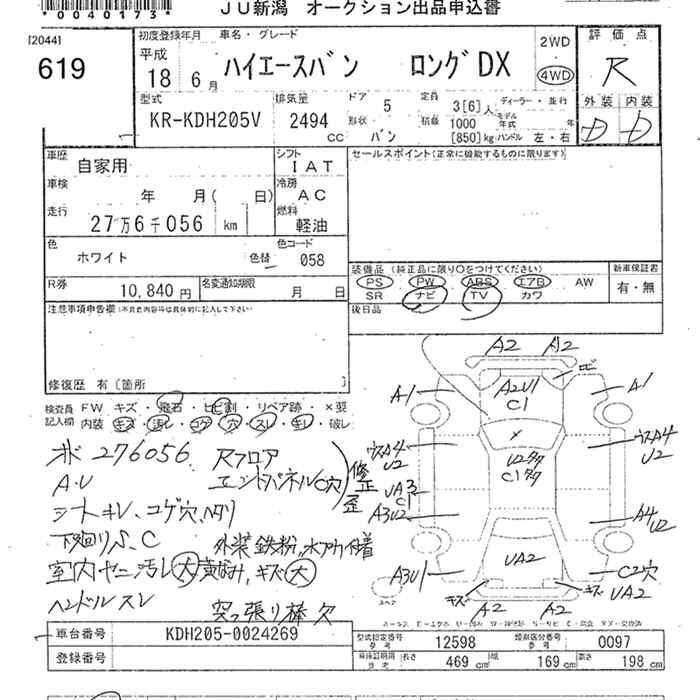 *0040173*
JU新潟 オークション出品申込書
[2044]
619
初度登録年月 車名・グレード
平成
18 6月 ハイエースバン ロングDX
2WD
4WD
評価点
R
外装 内装
D D
型式 排気量 ドア 5 定員 3[6]人 ディーラー・並行
KR-KDH205V 2494 CC 形状 バン 積載 1000 [850]kg モデル年式 年 ハンドル 左・右
車歴 自家用 シフト IAT
車検 年 月( 日) 冷房 AC
走行 27万6千056 km 燃料 軽油
色 ホワイト 色替 色コード 058
R券 10,840円 名変通知期限 月 日
セールスポイント(正常に機能するものに限ります)
装備品(純正品に限り○をつけてください) 新車保証書
PS PW ABS エアB AW 有・無
SR ナビ TV カワ
後日品
注意事項申告欄(不具合内容等は具体的に記入して下さい)
修復歴 有〔箇所
検査員 FW キズ・飛石・ヒビ割・リペア跡・×要
記入欄 内装 キズ・汚レ・コゲ・穴・スレ・キレ・破レ
276056 Rフロア
A.U エンドパネルC穴 修正歪
シートキレ、コゲ穴、ヘタリ
下廻りS、C 外装鉄粉、水アカ付着
室内ヤニ汚レ大 黄ばみ、キズ大
ハンドルスレ 突っ張り棒欠
A2 A2
A2U1
C1
A1 A1
ウスA4
U2
ウスA4
U2
U2タタ
C1タタ
UA3
C1
A3U2
A4
U2
UA2
A3U1
C2穴
UA2
キズ キズ
A2 A2
スペア
車台番号 KDH205-0024269
登録番号
型式指定番号 参考 12598 類別区分番号 参考 0097
車検証明用 参考 長さ 469cm 幅 169cm 高さ 198cm